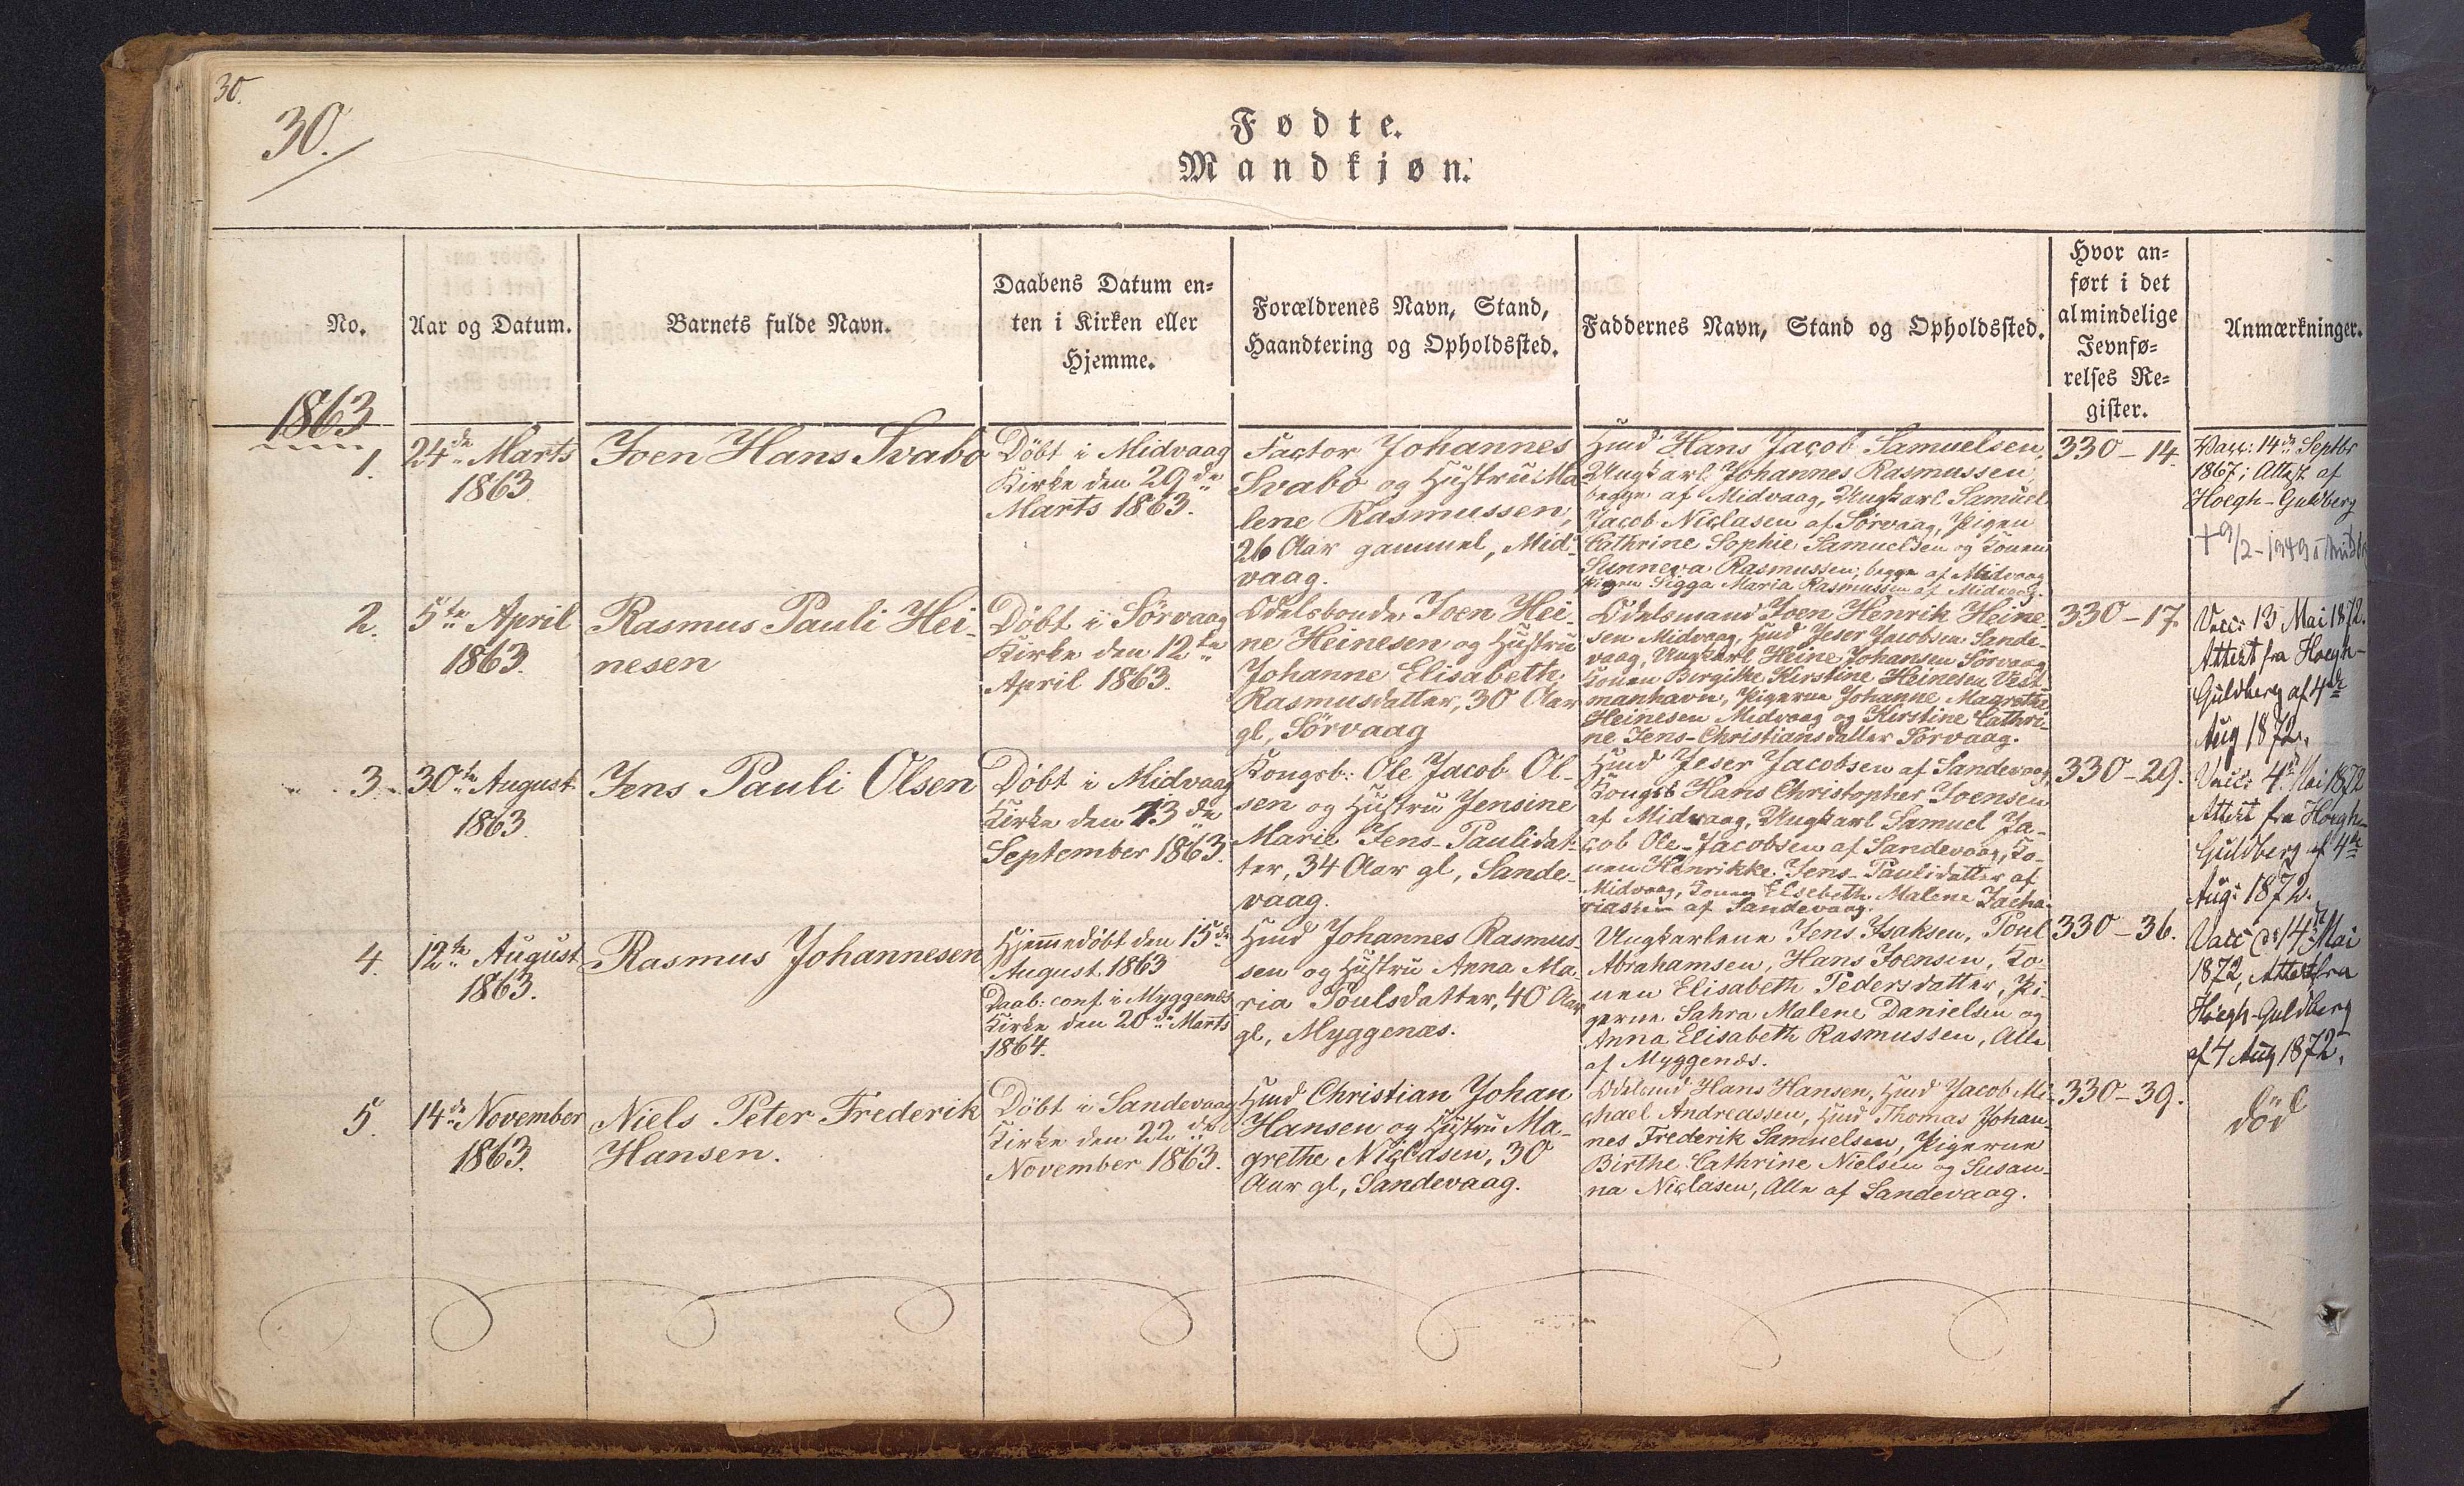 30.
30.
Fødte.
Mandkjøn.
No.
Aar og Datum.
Barnets fulde Navn.
Daabens Datum en=
ten i Kirken eller
Hjemme.
Forældrenes Navn, Stand,
Haandtering og Opholdssted.
Faddernes Navn, Stand og Opholdssted.
Hvor an=
ført i det
almindelige
Jevnfø=
relses Re=
gister.
Anmærkninger.
1863
1.
24de Marts
1863.
Joen Hans Svabo
Döbt i Midvaag
Kirke den 29de
Marts 1863.
Factor Johannes
Svabo og Hustru Ma-
lene Rasmussen,
26 Aar gammel, Mid-
vaag.
Hmd Hans Jacob Samuelsen,
Ungkarl Johannes Rasmussen,
begge af Midvaag, Ungkarl Samuel
Jacob Niclasen af Sörvaag, Pigen
Cathrine Sophie Samuelsen og Konen
Sunneva Rasmussen, begge af Midvaag
Pigen Sigga Maria Rasmussen af Midvaag.
330-14.
Vacc: 14de Septbr
1867; Attest af
Hoegh-Guldberg
+ 9/2-1949
2.
5te April
1863.
Rasmus Pauli Hei-
nesen
Döbt i Sörvaag
Kirke den 12te
April 1863.
Odelsbonde Joen Hei-
ne Heinesen og Hustru
Johanne Elisabeth
Rasmusdatter, 30 Aar
gl, Sörvaag
Odelsmand Joen Henrik Heine-
sen Midvaag, Hmd Jeser Jacobsen Sande-
vaag, Ungkarl Heine Johansen Sörvaag
Konen Birgitte Kirstine Heinesen Vest-
manhavn, Pigerne Johanne Magrethe
Heinesen Midvaag og Kirstine Cathri-
ne Jens-Christiansdatter Sörvaag.
330-17.
Vacc: 13 Mai 1872.
Attest fra Hoegh-
Guldberg af 4de
Aug 1872.
3.
30te August
1863.
Jens Pauli Olsen
Döbt i Midvaag
Kirke den 13de
September 1863.
Kongsb: Ole Jacob Ol-
sen og Hustru Jensine
Marie Jens-Paulidat-
ter, 34 Aar gl, Sande-
vaag.
Hmd Jeser Jacobsen af Sandevaag,
Kongsb Hans Christopher Joensen
af Midvaag, Ungkarl Samuel Ja-
cob Ole-Jacobsen af Sandevaag, Ko-
nen Henrikke Jens-Paulidatter af
Midvaag, Konen Elsebeth Malene Zacha-
riasen af Sandevaag.
330-29.
Vacc: 4de Mai 1872
Attest fra Hoegh-
Guldberg af 4de
Aug: 1872.
4.
12te August
1863.
Rasmus Johannesen
Hjemmedöbt den 15de
August 1863
Daab: conf. i Myggenæs
Kirke den 20de Marts
1864.
Hmd Johannes Rasmus-
sen og Hustru Anna Ma-
ria Poulsdatter, 40 Aar
gl, Myggenæs.
Ungkarlene Jens Isaksen, Poul
Abrahamsen, Hans Joensen, Ko-
nen Elisabeth Pedersdatter, Pi-
gerne Sahra Malene Danielsen og
Anna Elisabeth Rasmussen, Alle
af Myggenæs.
330-36.
Vacc d: 14 Mai
1872, Attest fra
Hoegh-Guldberg
af 4 Aug 1872.
5.
14de November
1863.
Niels Peter Frederik
Hansen.
Döbt i Sandevaag
Kirke den 22de
November 1863.
Hmd Christian Johan
Hansen og Hustru Ma-
grethe Niclasen, 30
Aar gl, Sandevaag.
Hans Hansen, Hmd Jacob Mi-
chael Andreassen, Hmd Thomas Johan-
nes Frederik Samuelsen, Pigerne
Birthe Cathrine Nielsen og Susan-
na Niclasen, Alle af Sandevaag.
330-39.
död